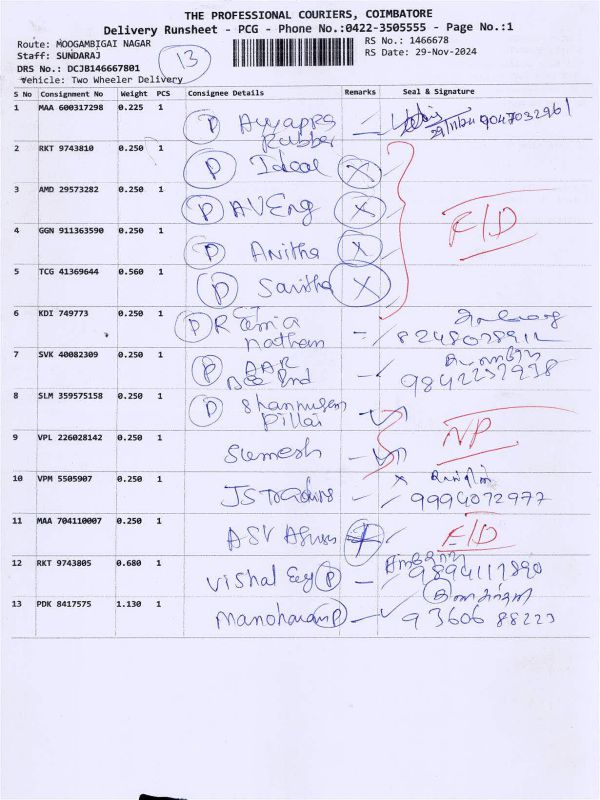 THE PROFESSIONAL COURIERS, COIMBATORE
Delivery Runsheet - PCG - Phone No.:0422-3505555 - Page No.:1
Route: MOOGAMBIGAI NAGAR
RS No.: 1466678
Staff: SUNDARAJ
RS Date: 29-Nov-2024
DRS No.: DCJB146667801
Vehicle: Two Wheeler Delivery
13
S No Consignment No Weight PCS Consignee Details Remarks Seal & Signature
1 MAA 600317298 0.225 1
P Ayyappa Rubber 9047032961
2 RKT 9743810 0.250 1
P Ideal X
3 AMD 29573282 0.250 1
P AV Eng X
F/D
4 GGN 911363590 0.250 1
P Anitha X
5 TCG 41369644 0.560 1
P Saritha X
6 KDI 749773 0.250 1
P
nathan
7 SVK 40082309 0.250 1
P AAR
8 SLM 359575158 0.250 1
P Shanmugam
Pillai
NP
9 VPL 226028142 0.250 1
Sumesh
10 VPM 5505907 0.250 1
JS Traders X 9994072977
11 MAA 704110007 0.250 1
ASV F/D
12 RKT 9743805 0.680 1
Vishal Eng P 9894117890
13 PDK 8417575 1.130 1
Manoharan P 93606 88223